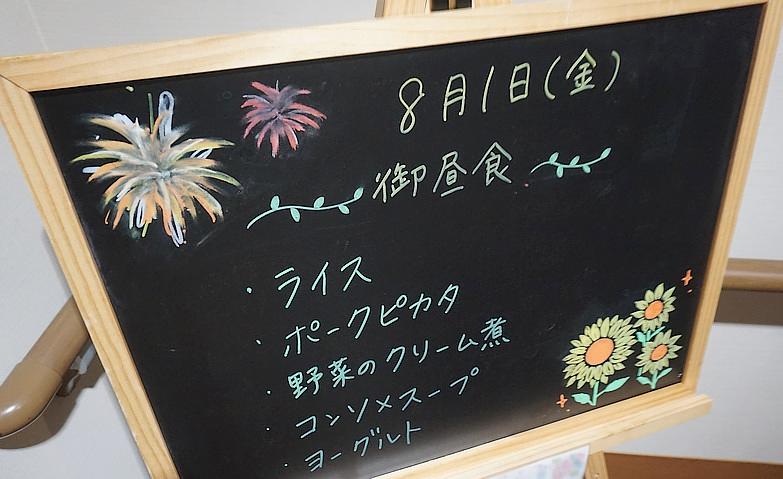 8月1日(金)
御昼食
・ライス
・ポークピカタ
・野菜のクリーム煮
・コンソメスープ
・ヨーグルト